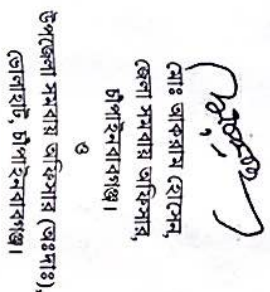 মোঃ আকরাম হোসেন,
জেলা সমবায় অফিসার,
চাঁপাইনবাবগঞ্জ।
ও
উপজেলা সমবায় অফিসার (অঃদাঃ),
ভোলাহাট, চাঁপাইনবাবগঞ্জ।